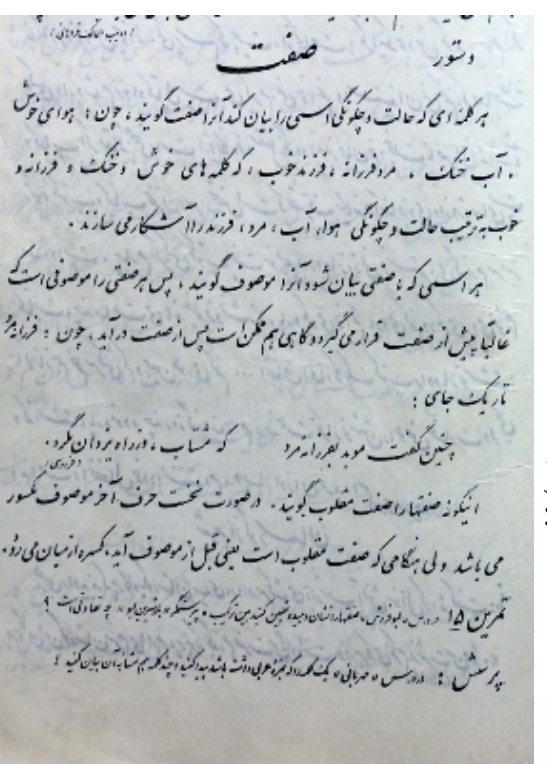 (ادیب الممالک فراهانی)
دستور صفت
هر کلمه ای که حالت و چگونگی اسمی را بیان کند آنرا صفت گویند، چون: هوای خوش
، آب خنک ، مرد فرزانه ، فرزند خوب ، که کلمه های خوش و خنک و فرزانه و
خوب به ترتیب حالت و چگونگی هوا، آب ، مرد ، فرزند را آشکار می سازند .
هر اسمی که با صفتی بیان شود آنرا موصوف گویند ، پس هر صفتی را موصوفی است که
غالباً پیش از صفت قرار می گیرد و گاهی هم ممکن است پس از صفت درآید ، چون : فرزانه مرد
تاریک جای :
چنین گفت موبد بفرزانه مرد که مشتاب ، در راه یزدان بگرد .
(فردوسی)
اینگونه صفتها را صفت مقلوب گویند . در صورت نخست حرف آخر موصوف مکسور
می باشد ولی هنگامی که صفت مقلوب است یعنی قبل از موصوف آید ، کسره از میان می رود .
تمرین ۱۵ در درس صفتها را نشان دهید و تعیین کنید بین ترکیب چه تفاوتی است ؟
پرسش : در درس « مهربانی » یک کلمه را که همزهٔ عربی داشته باشد پیدا کنید و چند کلمه هم مشابه آن بیان کنید ؟